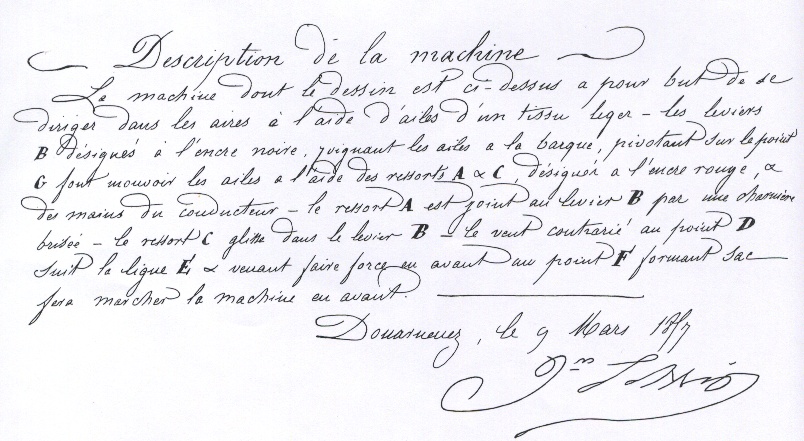 Description de la machine
La machine dont le dessin est ci-dessus a pour but de se
diriger dans les aires à l'aide d'ailes d'un tissu leger - les leviers
B désignés à l'encre noire, joignant les ailes a la barque, pivotant sur le point
G font mouvoir les ailes a l'aide des ressorts A & C, désignés a l'encre rouge, &
des mains du conducteur - le ressort A est joint au levier B par une charnière
brisée - le ressort C glisse dans le levier B - le vent contrarié au point D
suit la ligne E & venant faire force en avant au point F formant sac
fera marcher la machine en avant.
Douarnenez, le 9 Mars 1857